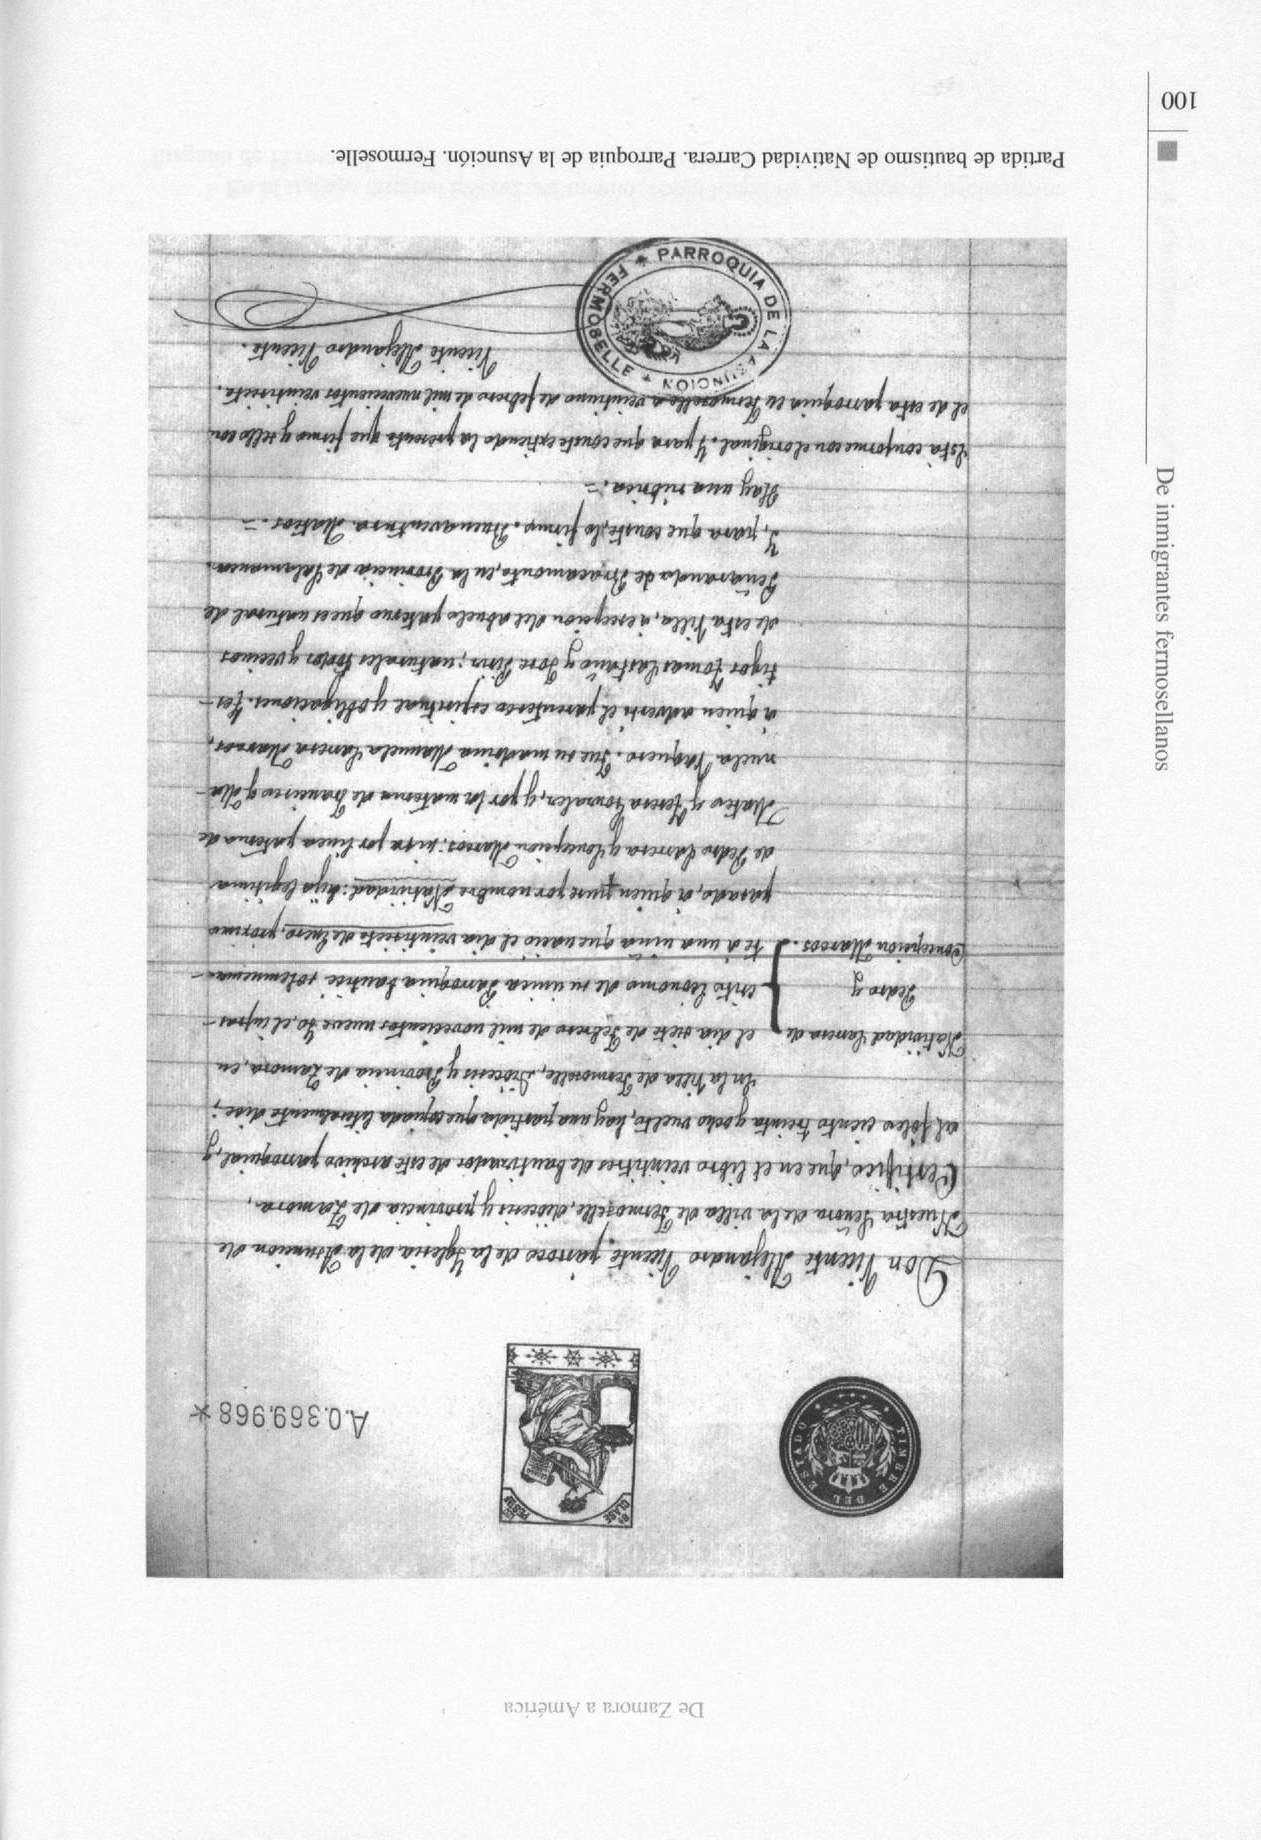 De Zamora a América
TIMBRE DEL ESTADO
8ª CLASE
PESETAS
A.0.369.968*
Don Vicente Alejandro Vicente párroco de la Iglesia de la Asunción de
Nuestra Señora de la villa de Fermoselle, diócesis y provincia de Zamora,
Certifico, que en el libro veintitres de bautizados de este archivo parroquial, y
al folio ciento treinta y ocho vuelto, hay una partida que copiada literalmente dice:
In la Villa de Fermoselle, Diócesis y Provincia de Zamora, en
Natividad Carrera de
el dia siete de Febrero de mil novecientos nueve Yo, el infras-
Pedro y
crito Ecónomo de su unica Parroquia bauticé solemnemen-
Concepcion Marcos.
te á una niña que nacio el dia veintisiete de Enero, próximo
pasado, á quien puse por nombre Natividad: hija legitima
de Pedro Carrera y Concepcion Marcos: nieta por linea paterna de
Mateo y Teresa Gonzalez, y por la materna de Francisco y Ma-
nuela Vaquero. Fue su madrina Manuela Carrera Marcos,
á quien adverti el parentesco espiritual y obligaciones. Tes-
tigos Tomas Castaño y José Pino; naturales todos y vecinos
de esta Villa, a escepcion del abuelo paterno que es natural de
Peñaranda de Bracamonte, en la Provincia de Salamanca.
Y, para que conste, lo firmo. Buenaventura Mateos. =
Hay una rubrica. =
Está conforme con el original. Y para que conste extiendo la presente que firmo y sello con
el de esta parroquia en Fermoselle a veintiuno de febrero de mil nuevecientos veintisiete.
Vicente Alejandro Vicente.
PARROQUIA DE LA ASUNCION * FERMOSELLE *
Partida de bautismo de Natividad Carrera. Parroquia de la Asunción. Fermoselle.
De inmigrantes fermosellanos
100